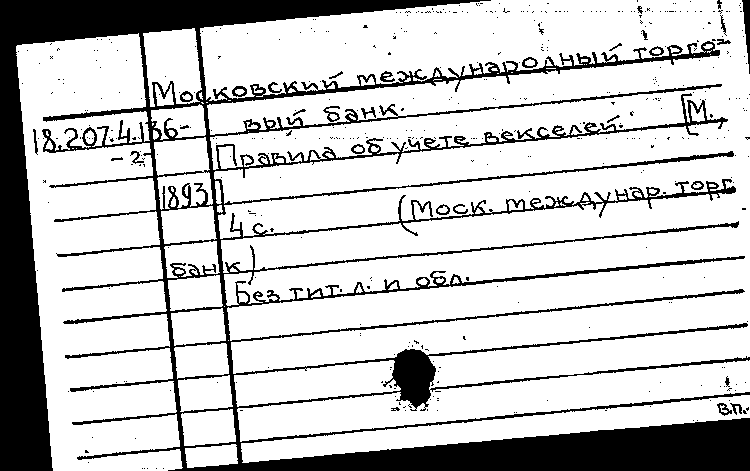 Московский международный торго-
18.207.4.136- вый банк.
-2-
Правила об учете векселей. [М.,
1893].
4 с. (Моск. междунар. торг.
банк)
Без тит. л. и обл.
В.П.